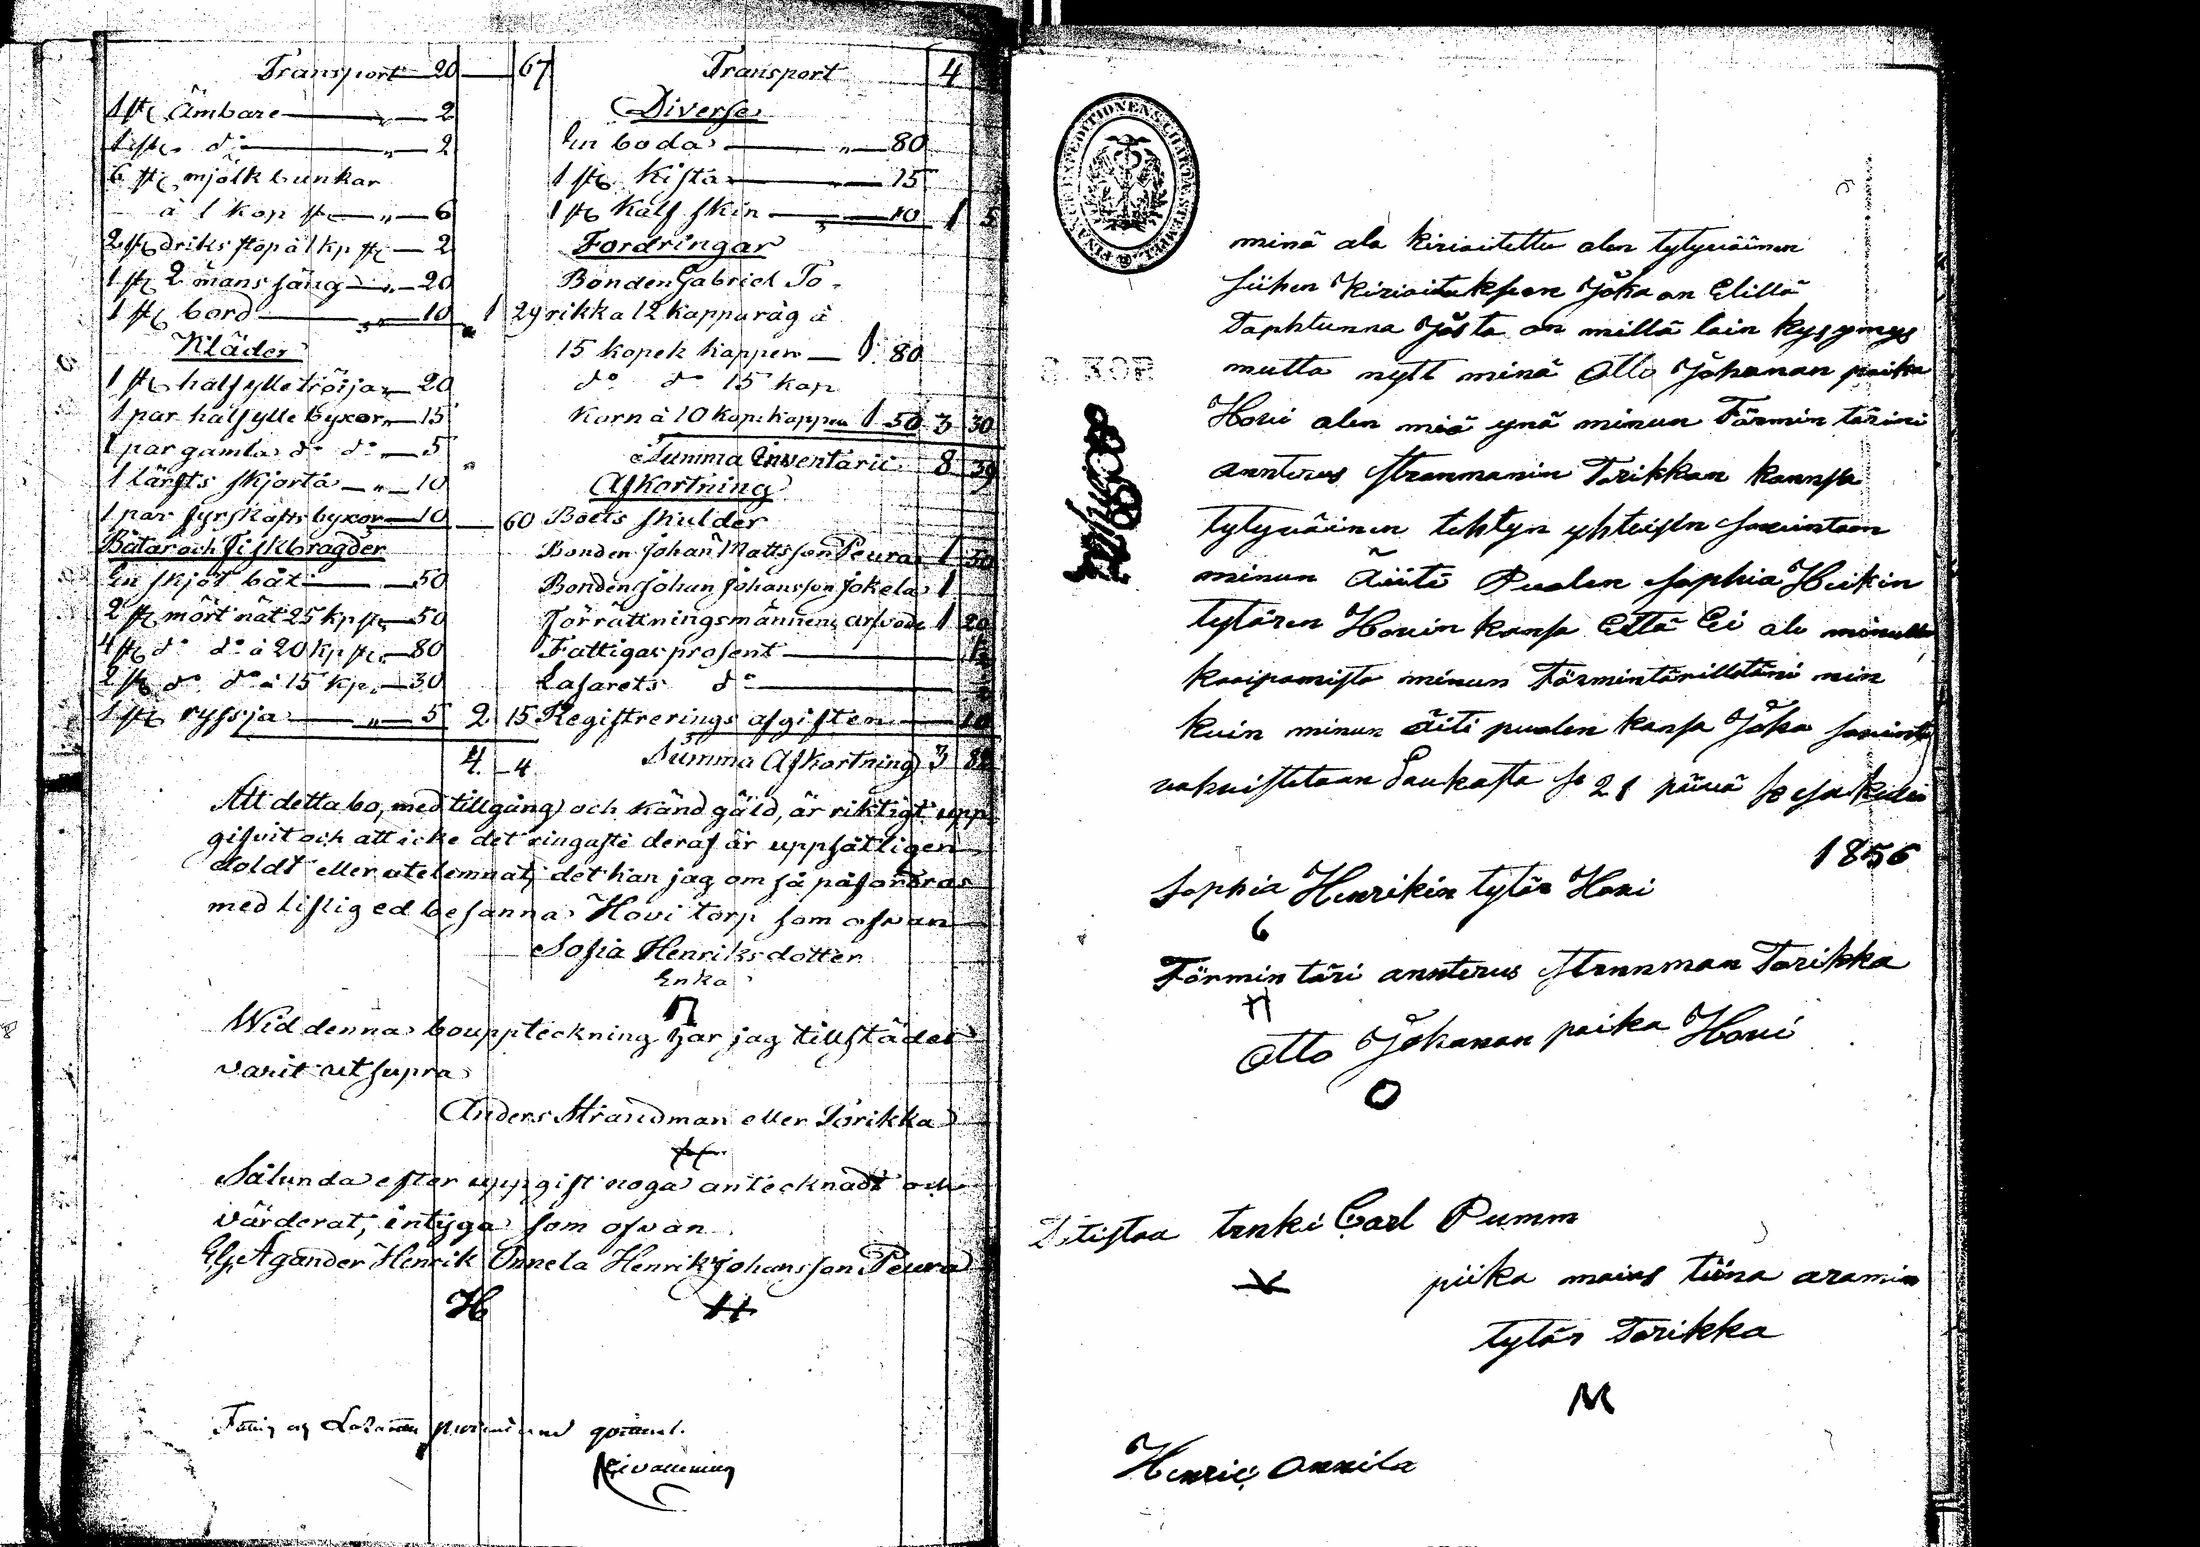 Transport — 20 — 67
1 st. Ämbare — „ — 2
1 st. do — „ — 2
6 st. mjölkbunkar
à 1 kop st. — „ — 6
2 st. driks stop à 1 kp st. — 2
1 st. 2 mans säng — „ — 20
1 st. bord — „ — 10 1 29
Kläder
1 st. halfylle tröija „ — 20
1 par halfylle byxor „ — 15
1 par gamla do do „ — 5
1 lärfts skjorta — „ — 10
1 par fyrskafts byxor — 10 — 60
Båtar och Fiskbragder
En skjöt båt — 50
2 st. mört nät 25 kp st. — 50
4 st. do do à 20 kp st. — 80
2 st. do do à 15 kp. — 30
1 st. ryssja — „ — 5 2 15
4 — 4
Transport 4
Diverse
En boda — „ — 80
1 st. Kista — „ — 15
1 st. kalf skin — „ — 10 1 5
Fordringar
Bonden Gabriel To-
rikka 12 kappa råg à
15 kopek kappen — 1 80
do do 15 kap
Korn à 10 kop. kappen 1 50 3 30
Summa Inventarii 8 39
Afkortning
Boets skulder
Bonden Johan Mattsson Peura 1 50
Bonden Johan Johansson Jokela 1
Förrättningsmännens arfvode 1 20
Fattigas prosent —
Lasarets do —
Registrerings afgiften — 10
Summa Afkortning 3
Att detta bo, med tillgång och känd gäld, är riktigt upp-
gifvit och att icke det ringaste deraf är uppsåtligen
doldt eller utelemnat, det kan jag om så påfordras
med liflig ed besanna. Hovi torp som ofvan
Sofia Henriksdotter
Enka
Wid denna bouppteckning har jag tillstädes
varit ut supra
Anders Strandman eller Torikka
Sålunda efter uppgift noga antecknadt och
värderat, intyga som ofvan
Agander Henrik Onnela Henrik Johansson Peura
H
FINANCE EXPEDITIONENS CHARTÆ STEMPEL
6. KOP.
minä ala kirioitettu olen tytyväinen
siihen kirioituksen Joka on Elillä
Taphtunna Josta on millä lain kysymys
mutta nytt minä Otto Johanan poika
Hovi olen miö ynä minun Förmintärini
annterus Stranmanin Torikkan kanssa
tytyväinen tehtyn yhteisen sovintoon
minun Äiiti Puolen Sophia Heikin
tytären Hovin kansa Että Ei ole minulla
kaaipamista minun Förmintärilläni nin
kuin minun äiti puolen kansa Joka sovinto
vahvistetaan Saukosta se 21 päivä
1856
Sophia Henrikin tytär Hovi
Förmintäri annterus Strannman Torikka
Otto Johanan poika Hovi
O
tistaa trnki Carl Pumm
piika maias tiina aramin
tytär Torikka
M
Henric Onnila